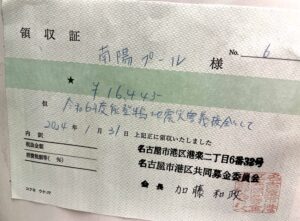 領収証
南陽プール 様
No. 6
★ ¥16,445-
但 令和6年度能登半島地震災害義援金として
2024年1月31日 上記正に領収いたしました
内訳
税抜金額
消費税額等( %)
名古屋市港区港楽二丁目6番32号
名古屋市港区共同募金委員会
会長 加藤和政
コクヨ